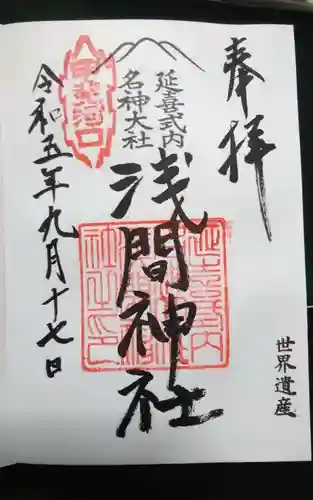 奉拝
世界遺産
延喜式内
名神大社
浅間神社
令和五年九月十七日